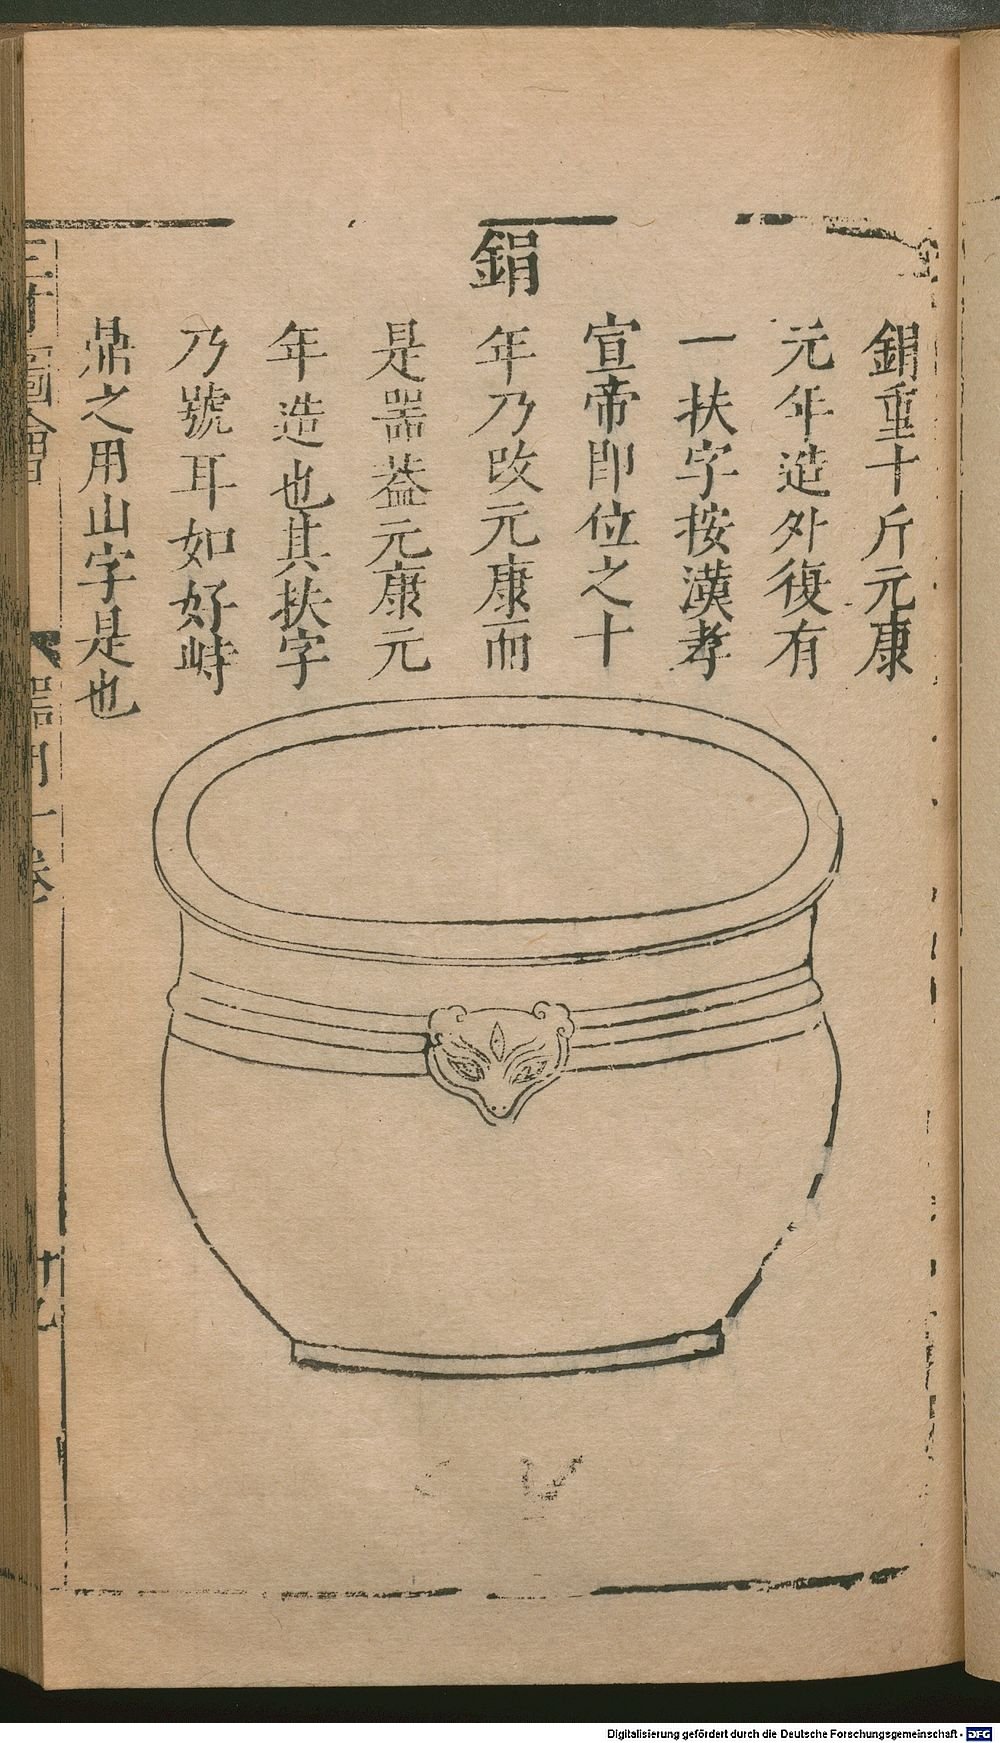 鋗
鋗重十斤元康
元年造外復有
一扶字按漢孝
宣帝即位之十
年乃改元康而
是器葢元康元
年造也其扶字
乃號耳如好畤
鼎之用山字是也
三才圖會
器用一卷
Digitalisierung gefördert durch die Deutsche Forschungsgemeinschaft - DFG